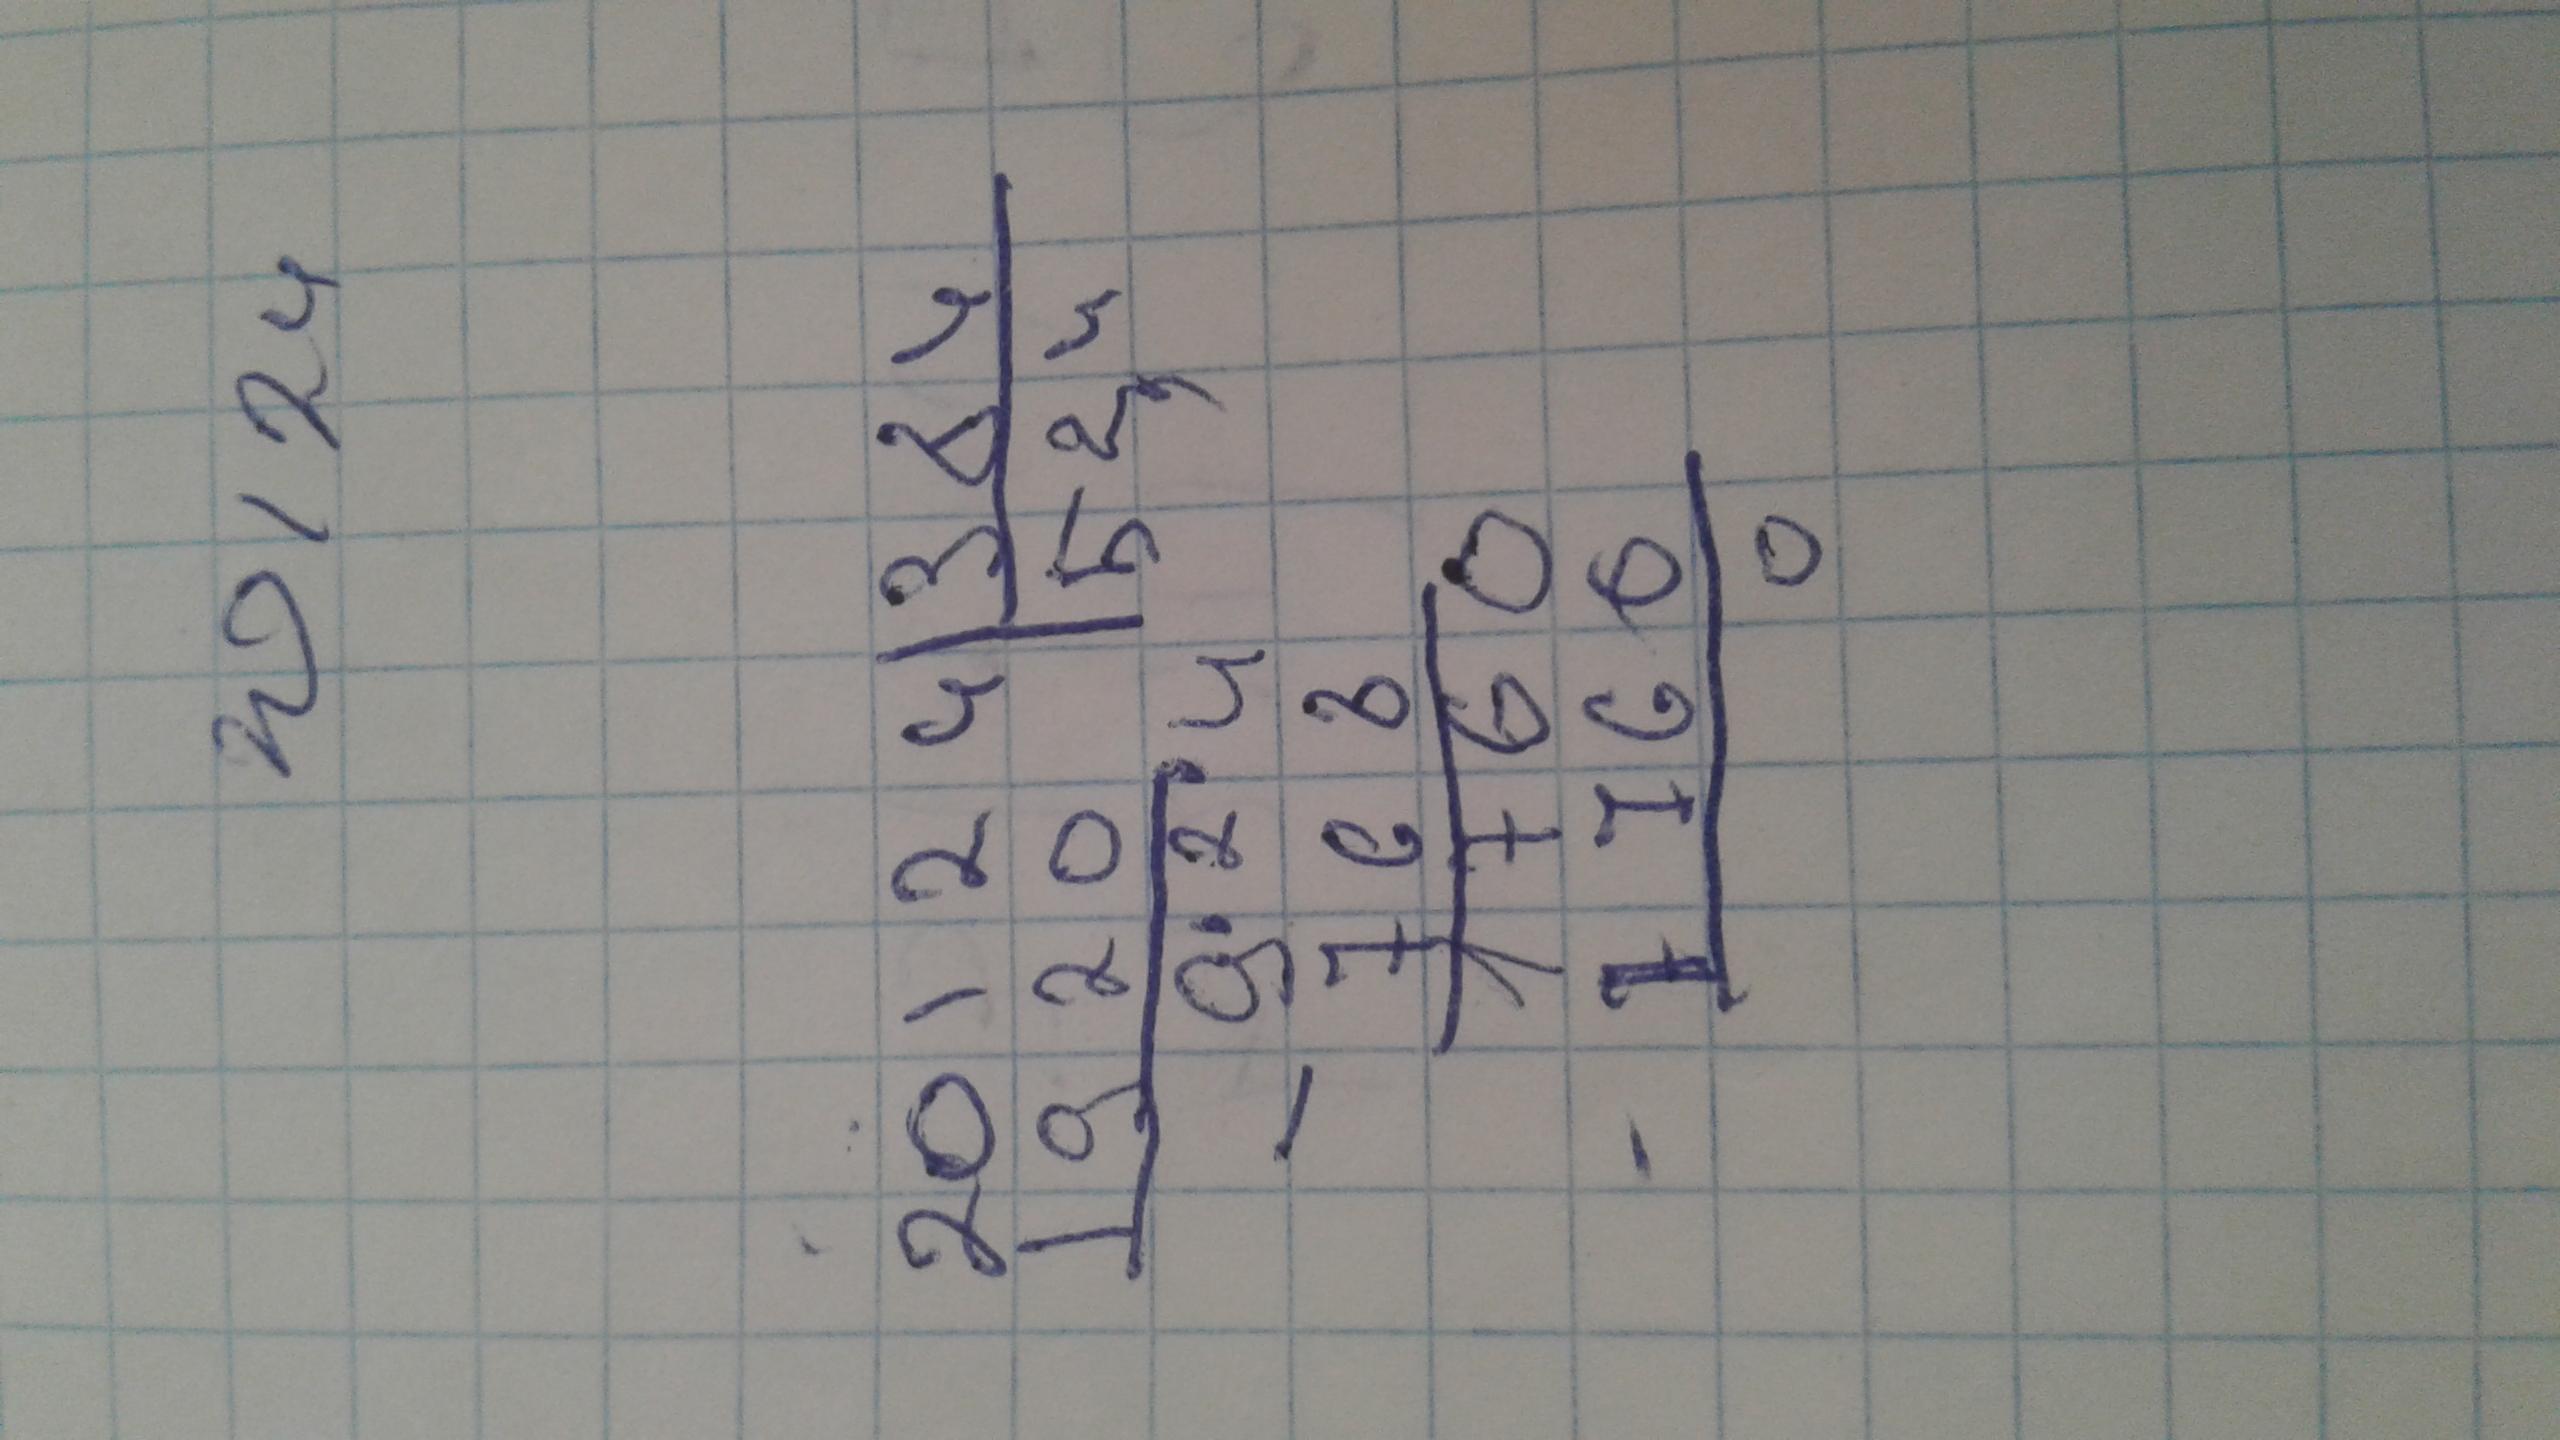 20124
20124 384
1920 52,4
924
- 768
1160
- 1160
0